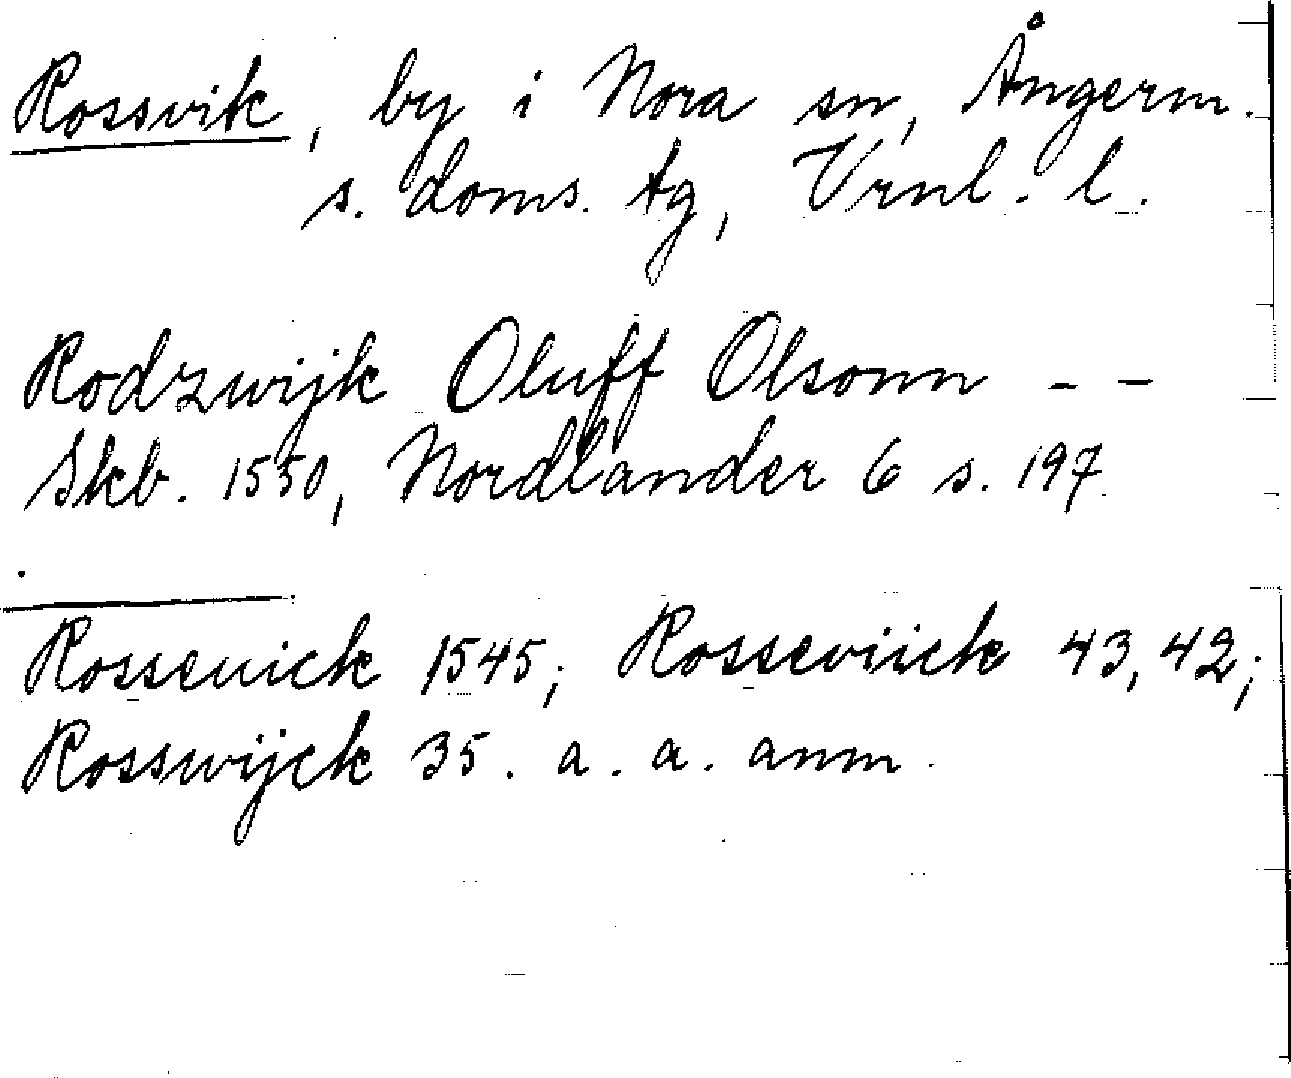 Rossvik, by i Nora sn, Ångerm.
s. doms. tg, Vrnl. l.
Rodzwijk Oluff Olsonn - -
Skb. 1550, Nordlander 6 s. 197.
Rossenick 1545; Rosseviick 43, 42;
Rosswijck 35. a. a. anm.